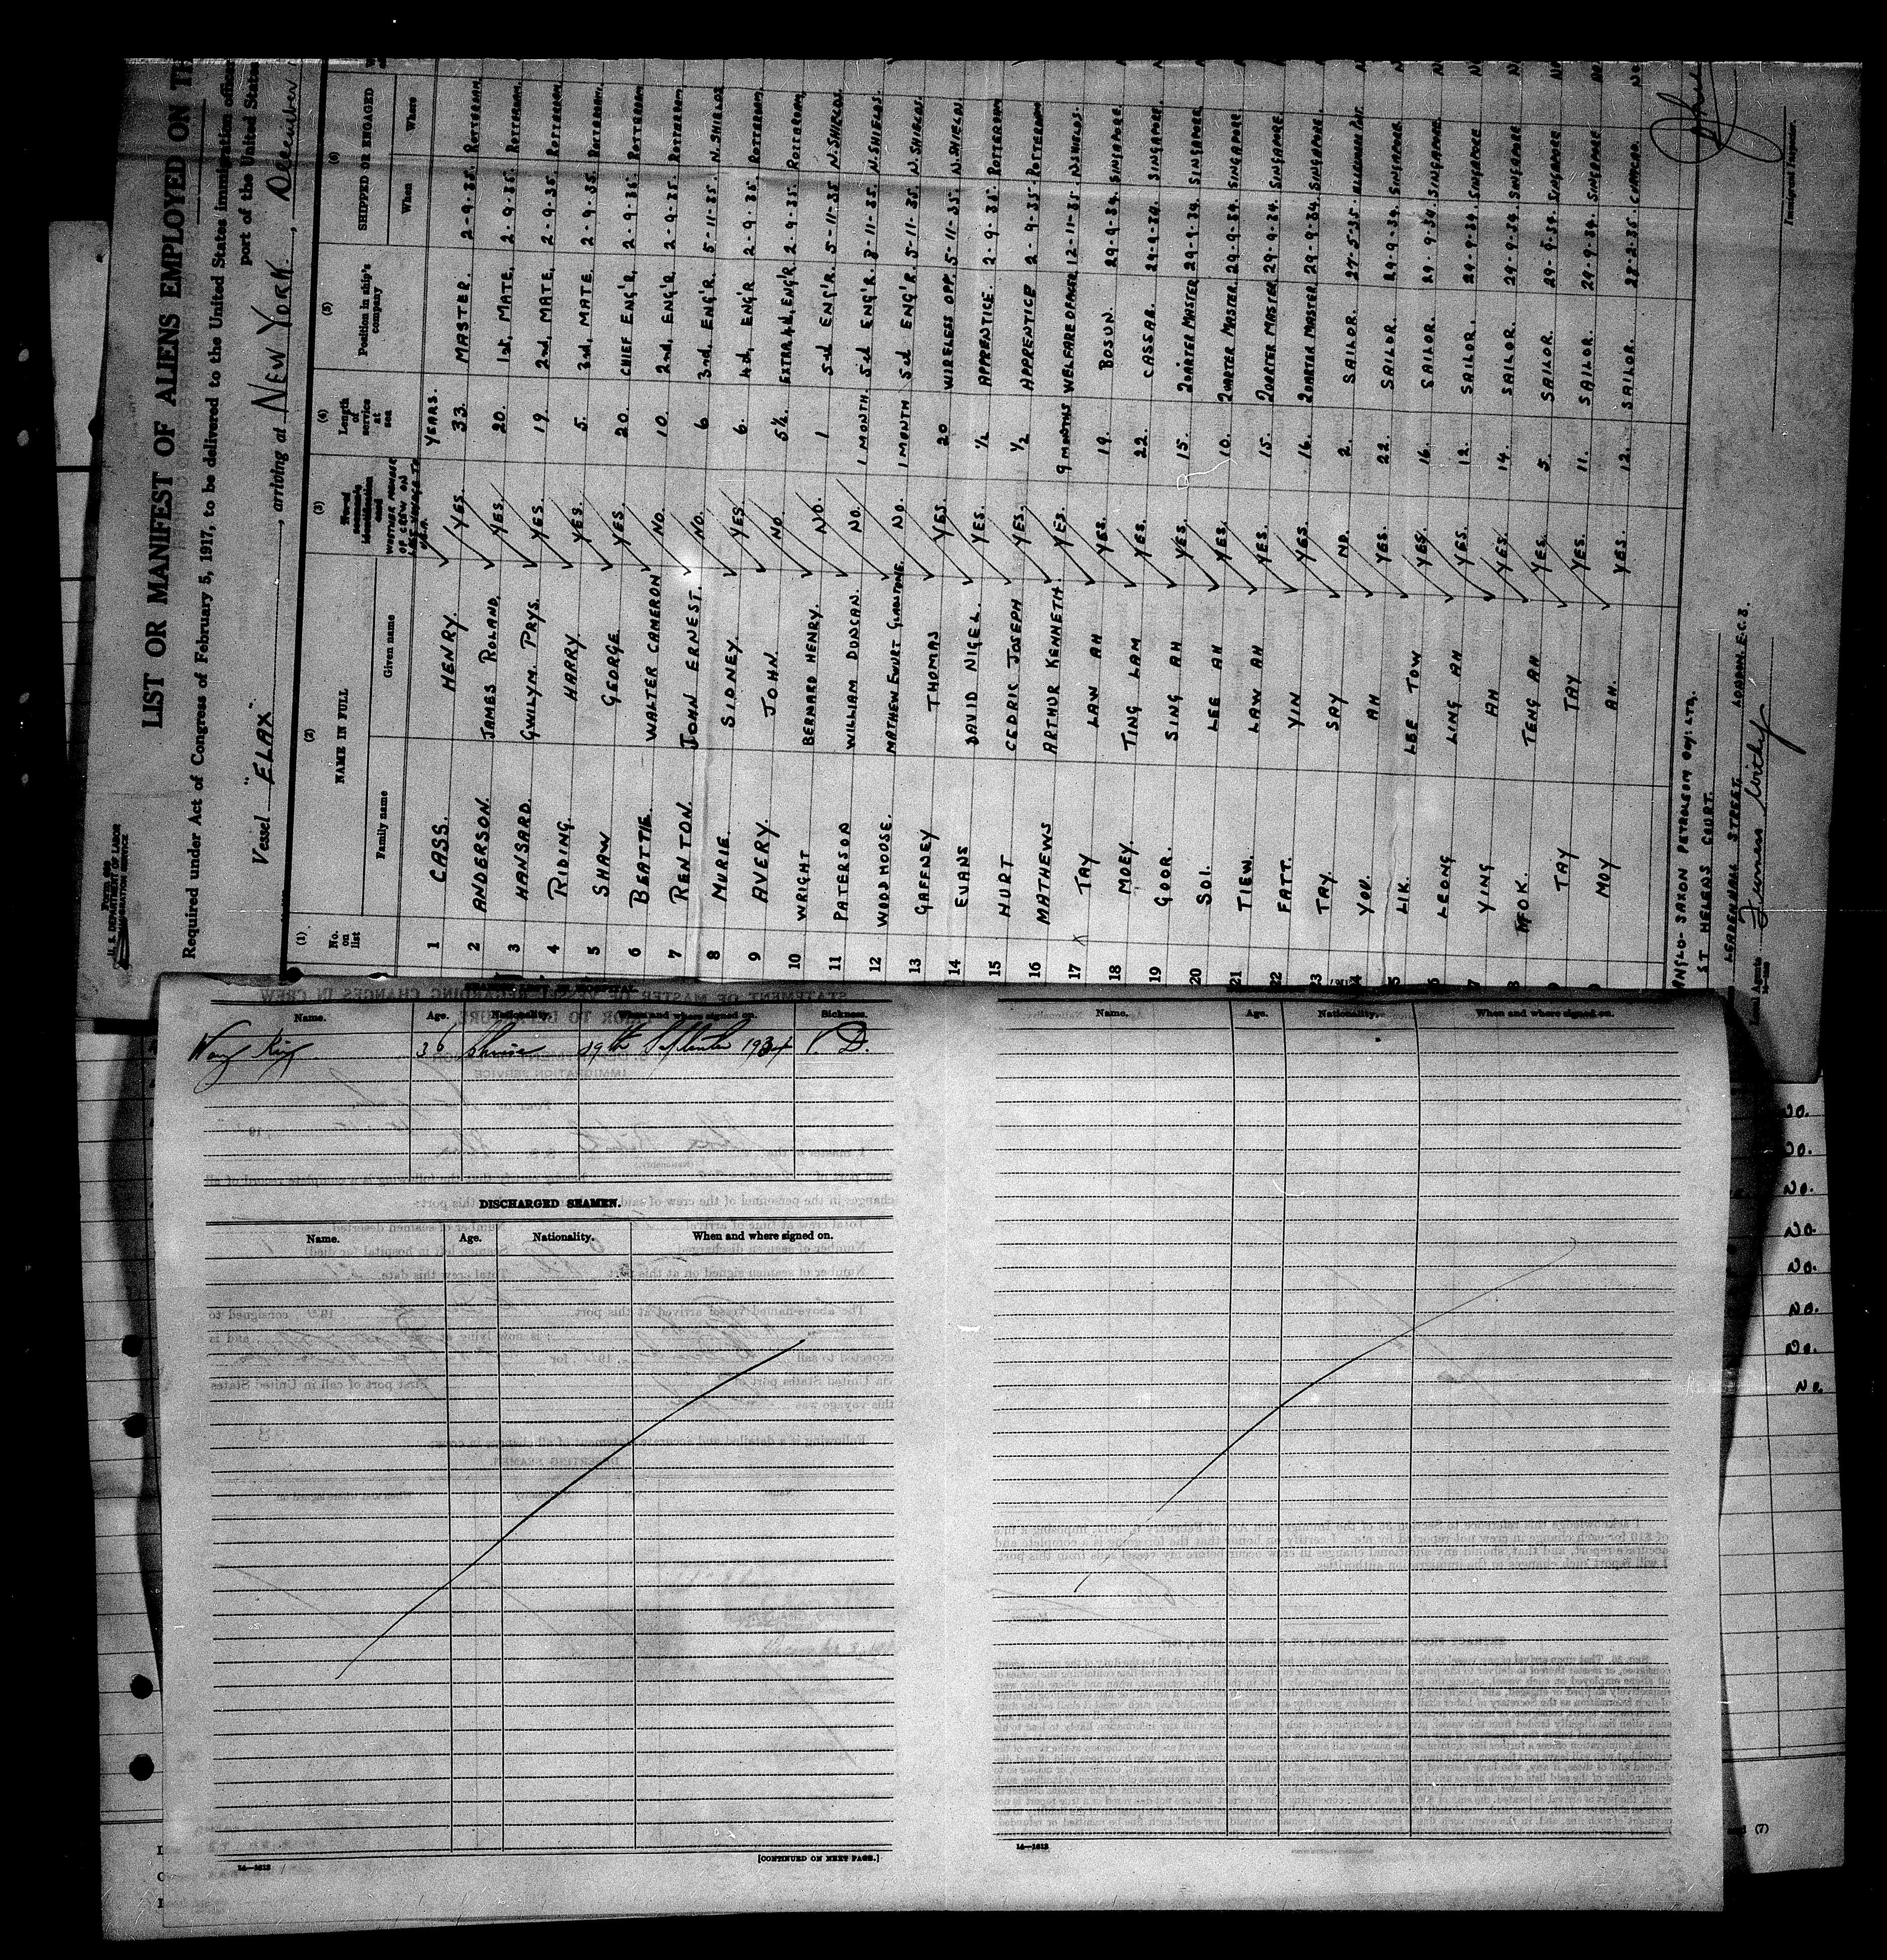 Form 680
U. S. DEPARTMENT OF LABOR
IMMIGRATION SERVICE
LIST OR MANIFEST OF ALIENS EMPLOYED ON TH
Required under Act of Congress of February 5, 1917, to be delivered to the United States immigration office
port of the United States
Vessel "ELAX", arriving at NEW YORK, December
(1) (2) (3) (4) (5) (6)
No. on list NAME IN FULL Length of service at sea Position in ship's company SHIPPED OR ENGAGED
Family name Given name WHETHER MEMBER OF CREW ON LAST VOYAGE TO U.S.A. When Where
YEARS.
1 CASS. HENRY. YES. 33. MASTER. 2-9-35. ROTTERDAM.
2 ANDERSON. JAMES ROLAND. YES. 20. 1st, MATE. 2-9-35. ROTTERDAM.
3 HANSARD. GWILYM PRYS. YES. 19. 2nd, MATE. 2-9-35. ROTTERDAM.
4 RIDING. HARRY YES. 5. 3rd, MATE. 2-9-35. ROTTERDAM.
5 SHAW GEORGE. YES. 20. CHIEF ENG'R. 2-9-35. ROTTERDAM
6 BEATTIE. WALTER CAMERON NO. 10. 2nd, ENG'R. 2-9-35. ROTTERDAM.
7 RENTON. JOHN ERNEST. NO. 6 3rd, ENG'R. 5-11-35. N. SHIELDS
8 MURIE. SIDNEY. YES. 6. 4th, ENG'R 2-9-35. ROTTERDAM.
9 AVERY. JOHN. NO. 5½. EXTRA 4th, ENG'R. 2-9-35. ROTTERDAM.
10 WRIGHT BERNARD HENRY. NO. 1 5th ENG'R. 5-11-35 N. SHIELDS.
11 PATERSON WILLIAM DUNCAN. NO. 1 MONTH. 5th ENG'R. 8-11-35. N. SHIELDS.
12 WOODHOUSE. MATHEW EWART GLADSTONE. NO. 1 MONTH 5th ENG'R. 5-11-35. N. SHIELDS.
13 GAFFNEY THOMAS YES. 20 WIRELESS OPP. 5-11-35. N. SHIELDS.
14 EVANS DAVID NIGEL. YES. ½ APPRENTICE. 2-9-35. ROTTERDAM
15 HURT CEDRIC JOSEPH YES. ½ APPRENTICE 2-9-35. ROTTERDAM
16 MATHEWS ARTHUR KENNETH. YES. 9 MONTHS WELFARE OFFICER 12-11-35. N SHIELDS.
17 TAY LAW AH YES. 19. BOSUN. 29-9-34. SINGAPORE.
18 MOEY. TING LAM YES. 22. CASSAB. 29-9-34. SINGAPORE.
19 GOOR. SING AH YES. 15. QUARTER MASTER 29-9-34. SINGAPORE.
20 SOI. LEE AH YES. 10. QUARTER MASTER. 29-9-34. SINGAPORE
21 TIEW. LAW AH YES. 15. QUARTER MASTER 29-9-34. SINGAPORE.
22 FATT. YIN YES. 16. QUARTER MASTER. 29-9-34. SINGAPORE.
23 TAY. SAY NO. 2. SAILOR. 27-5-35.
24 YOU. AH YES. 22. SAILOR. 29-9-34. SINGAPORE.
5 LIK. LEE TOW YES. 16. SAILOR. 29-9-34. SINGAPORE.
6 LEONG LING AH YES. 12. SAILOR. 29-9-34. SINGAPORE
7 YING AH YES. 14. SAILOR. 29-9-34. SINGAPORE
8 FOK. TENG AH YES. 5. SAILOR. 29-9-34. SINGAPORE
9 TAY TAY YES. 11. SAILOR. 29-9-34. SINGAPORE
MOY AH. YES. 12. SAILOR. 28-2-35.
ANGLO-SAXON PETROLEUM Coy: LTD,
ST HELENS COURT.
LEADENHALL STREET. LONDON. E.C.3.
Local Agents Furness Withy
Immigrant Inspector.
Name. Age. Nationality. When and where signed on. Sickness.
Wong King 36 Chinese 29th September 1934 V. D.
DISCHARGED SEAMEN.
Name. Age. Nationality. When and where signed on.
14—1613
[CONTINUED ON NEXT PAGE.]
Name. Age. Nationality. When and where signed on.
14—1613
NO.
NO.
NO.
NO.
NO.
NO.
NO.
NO.
(7)